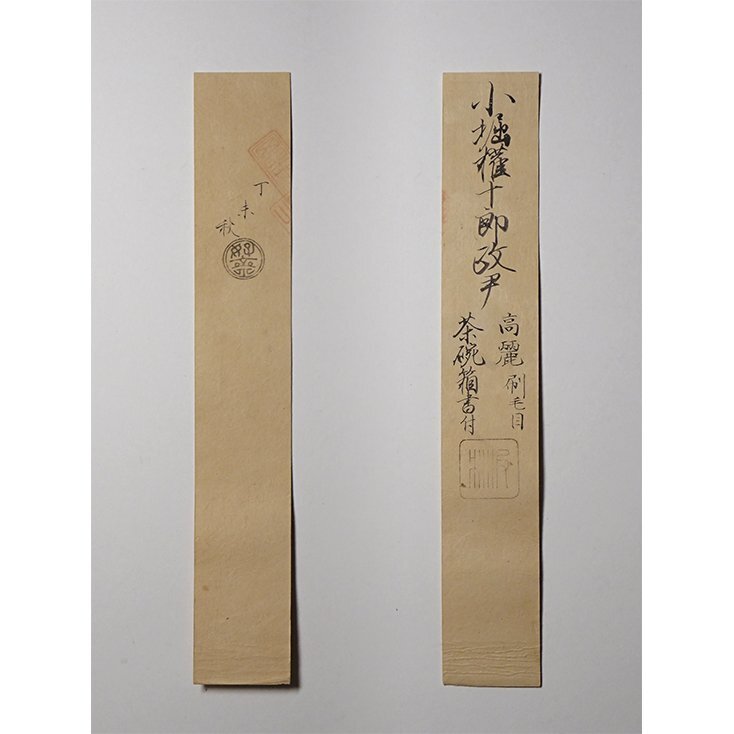 丁未秋
小堀權十郎政尹
高麗刷毛目
茶碗箱書付